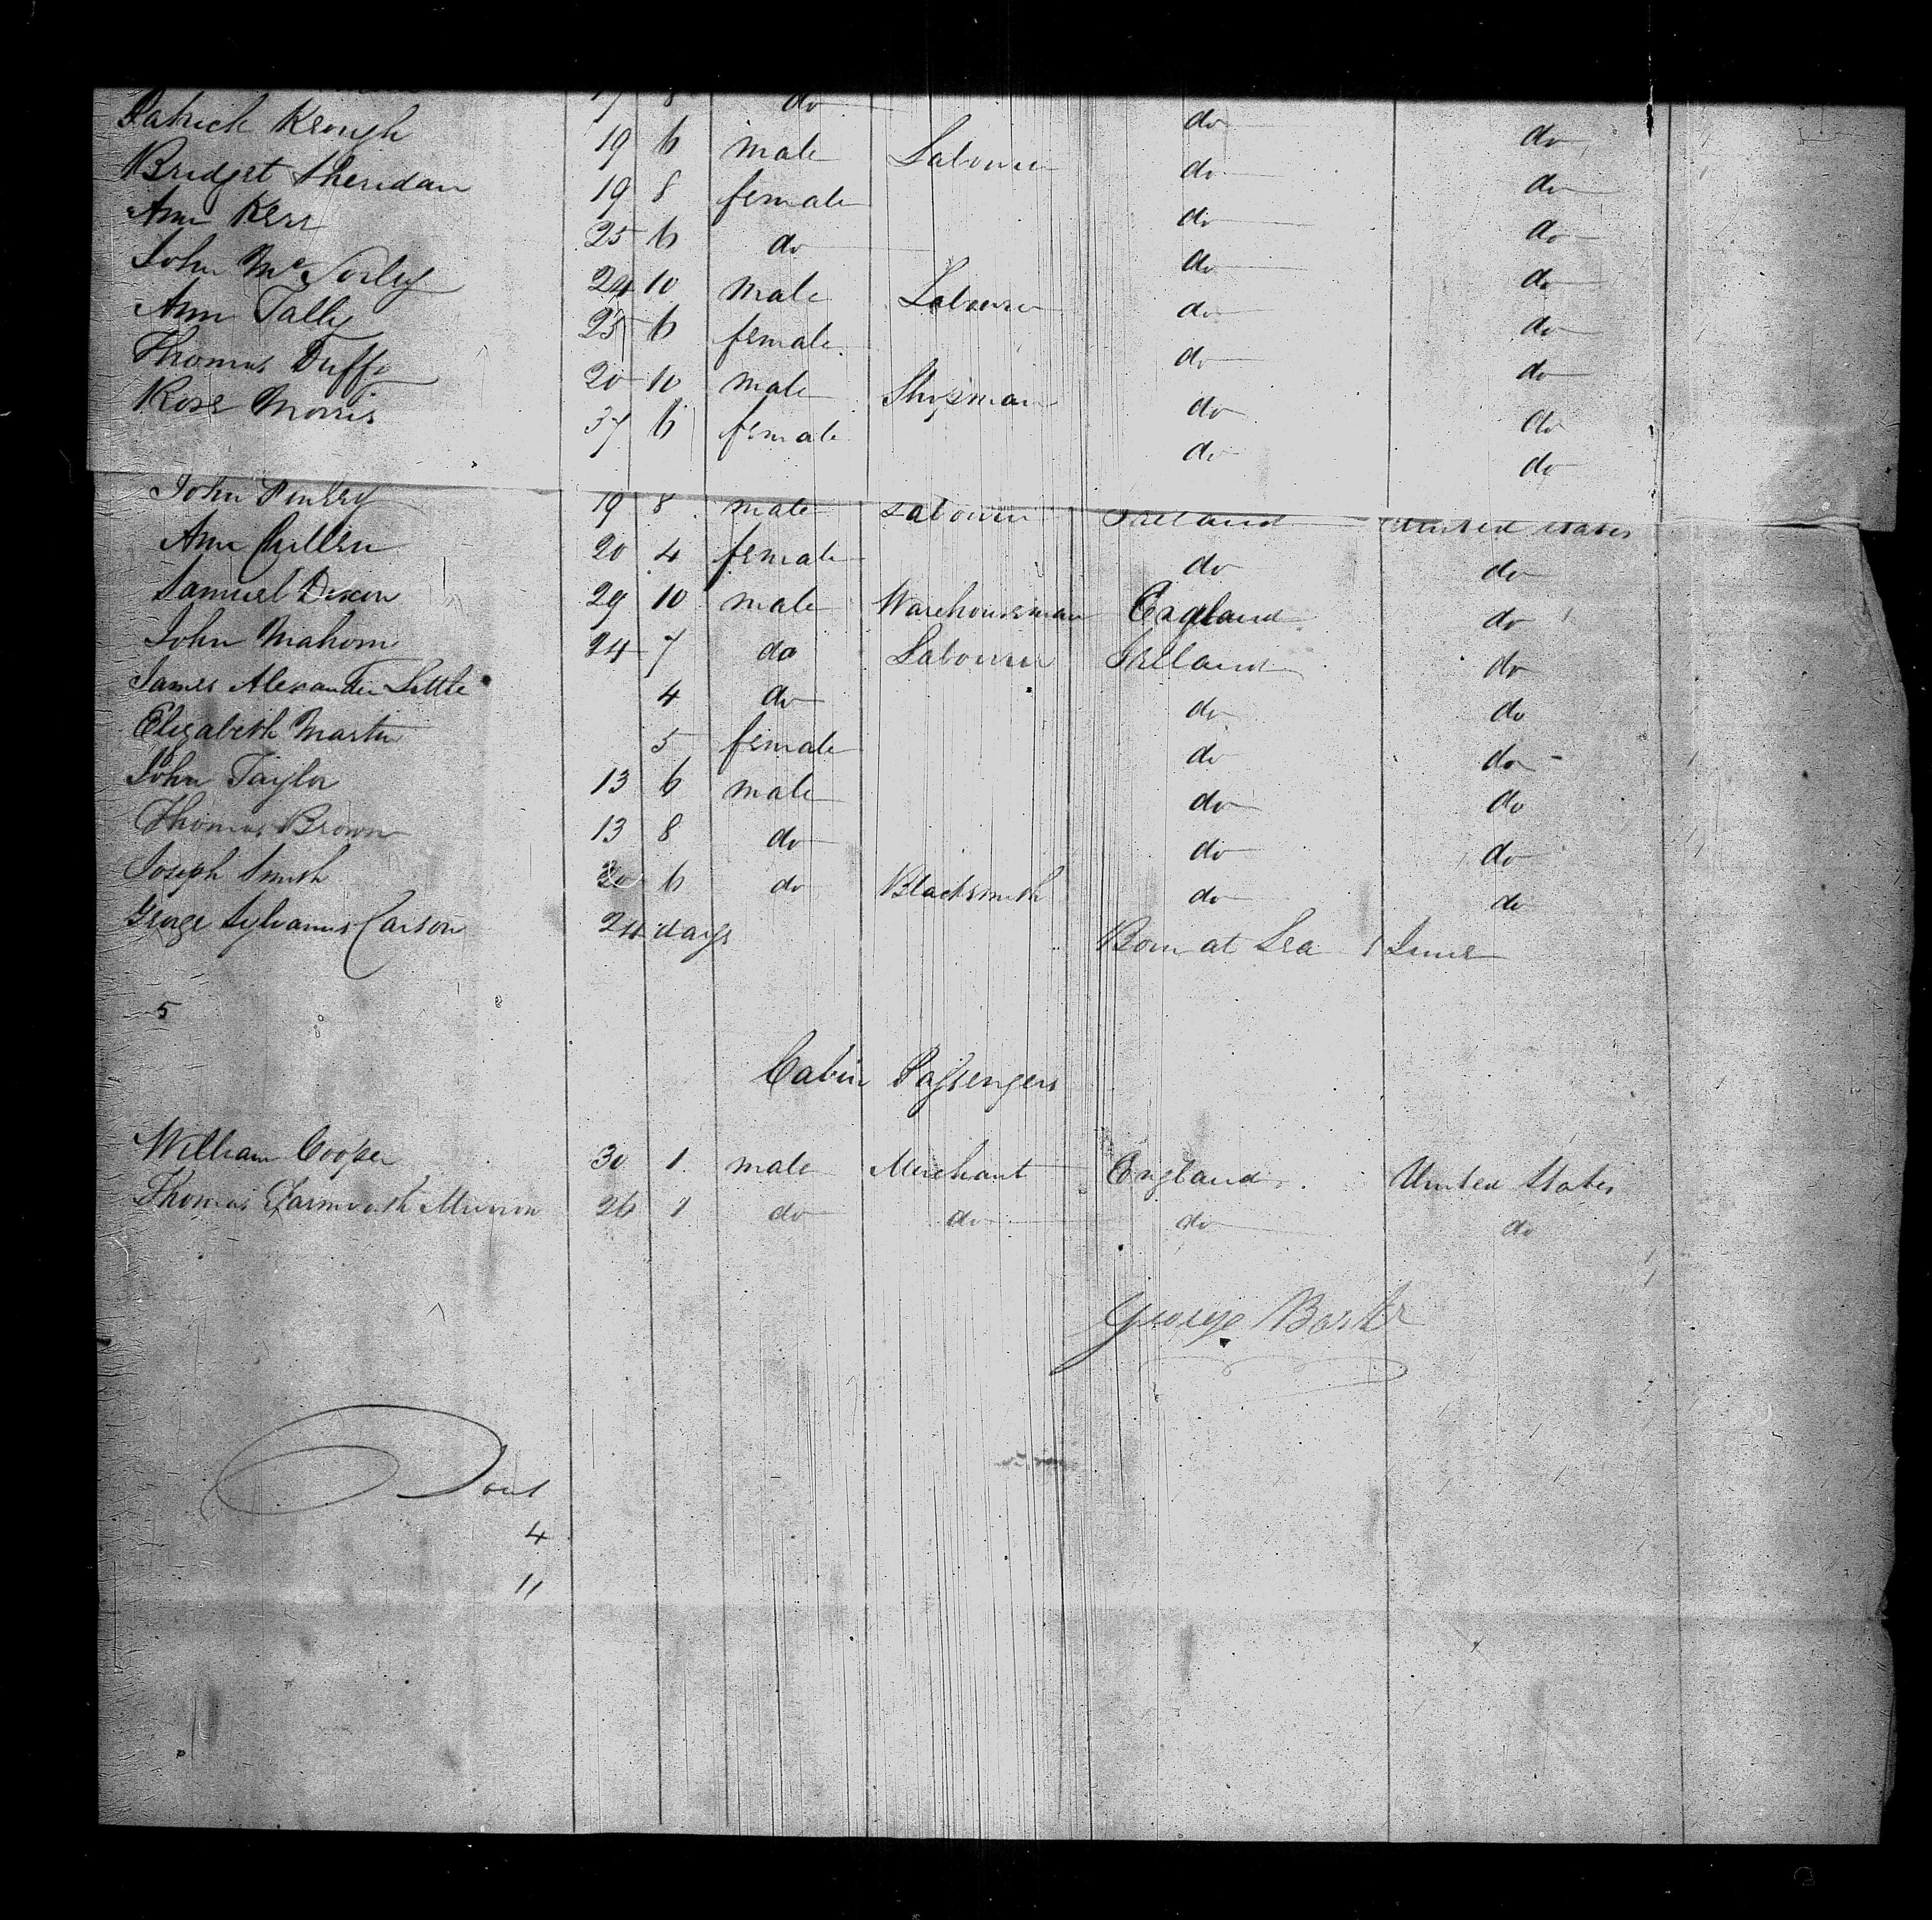 17 8 do do do
Patrick Keough 19 6 male Labourer do do
Bridget Sheridan 19 8 female do do
Ann Kerr 25 6 do do do
John McSorley 24 10 male Labourer do do
Ann Tally 25 6 female do do
Thomas Duffy 20 10 male Shopman do do
Rose Morris 37 6 female do do
John 19 8 male Labourer Ireland United States
Ann Cullen 20 4 female do do
Samuel Dixon 29 10 male Warehouseman England do
John Mahom 24 7 do Labourer Ireland do
James Alexander Little 4 do do do
Elizabeth Martin 5 female do do
John Taylor 13 6 male do do
Thomas Brown 13 8 do do do
Joseph Smith 20 6 do Blacksmith do do
George Sylvanus Carson 24 days Born at Sea 1 June
5
Cabin Passengers
William Cooper 30 1 male Merchant England United States
Thomas 26 1 do do do do
George
4
11